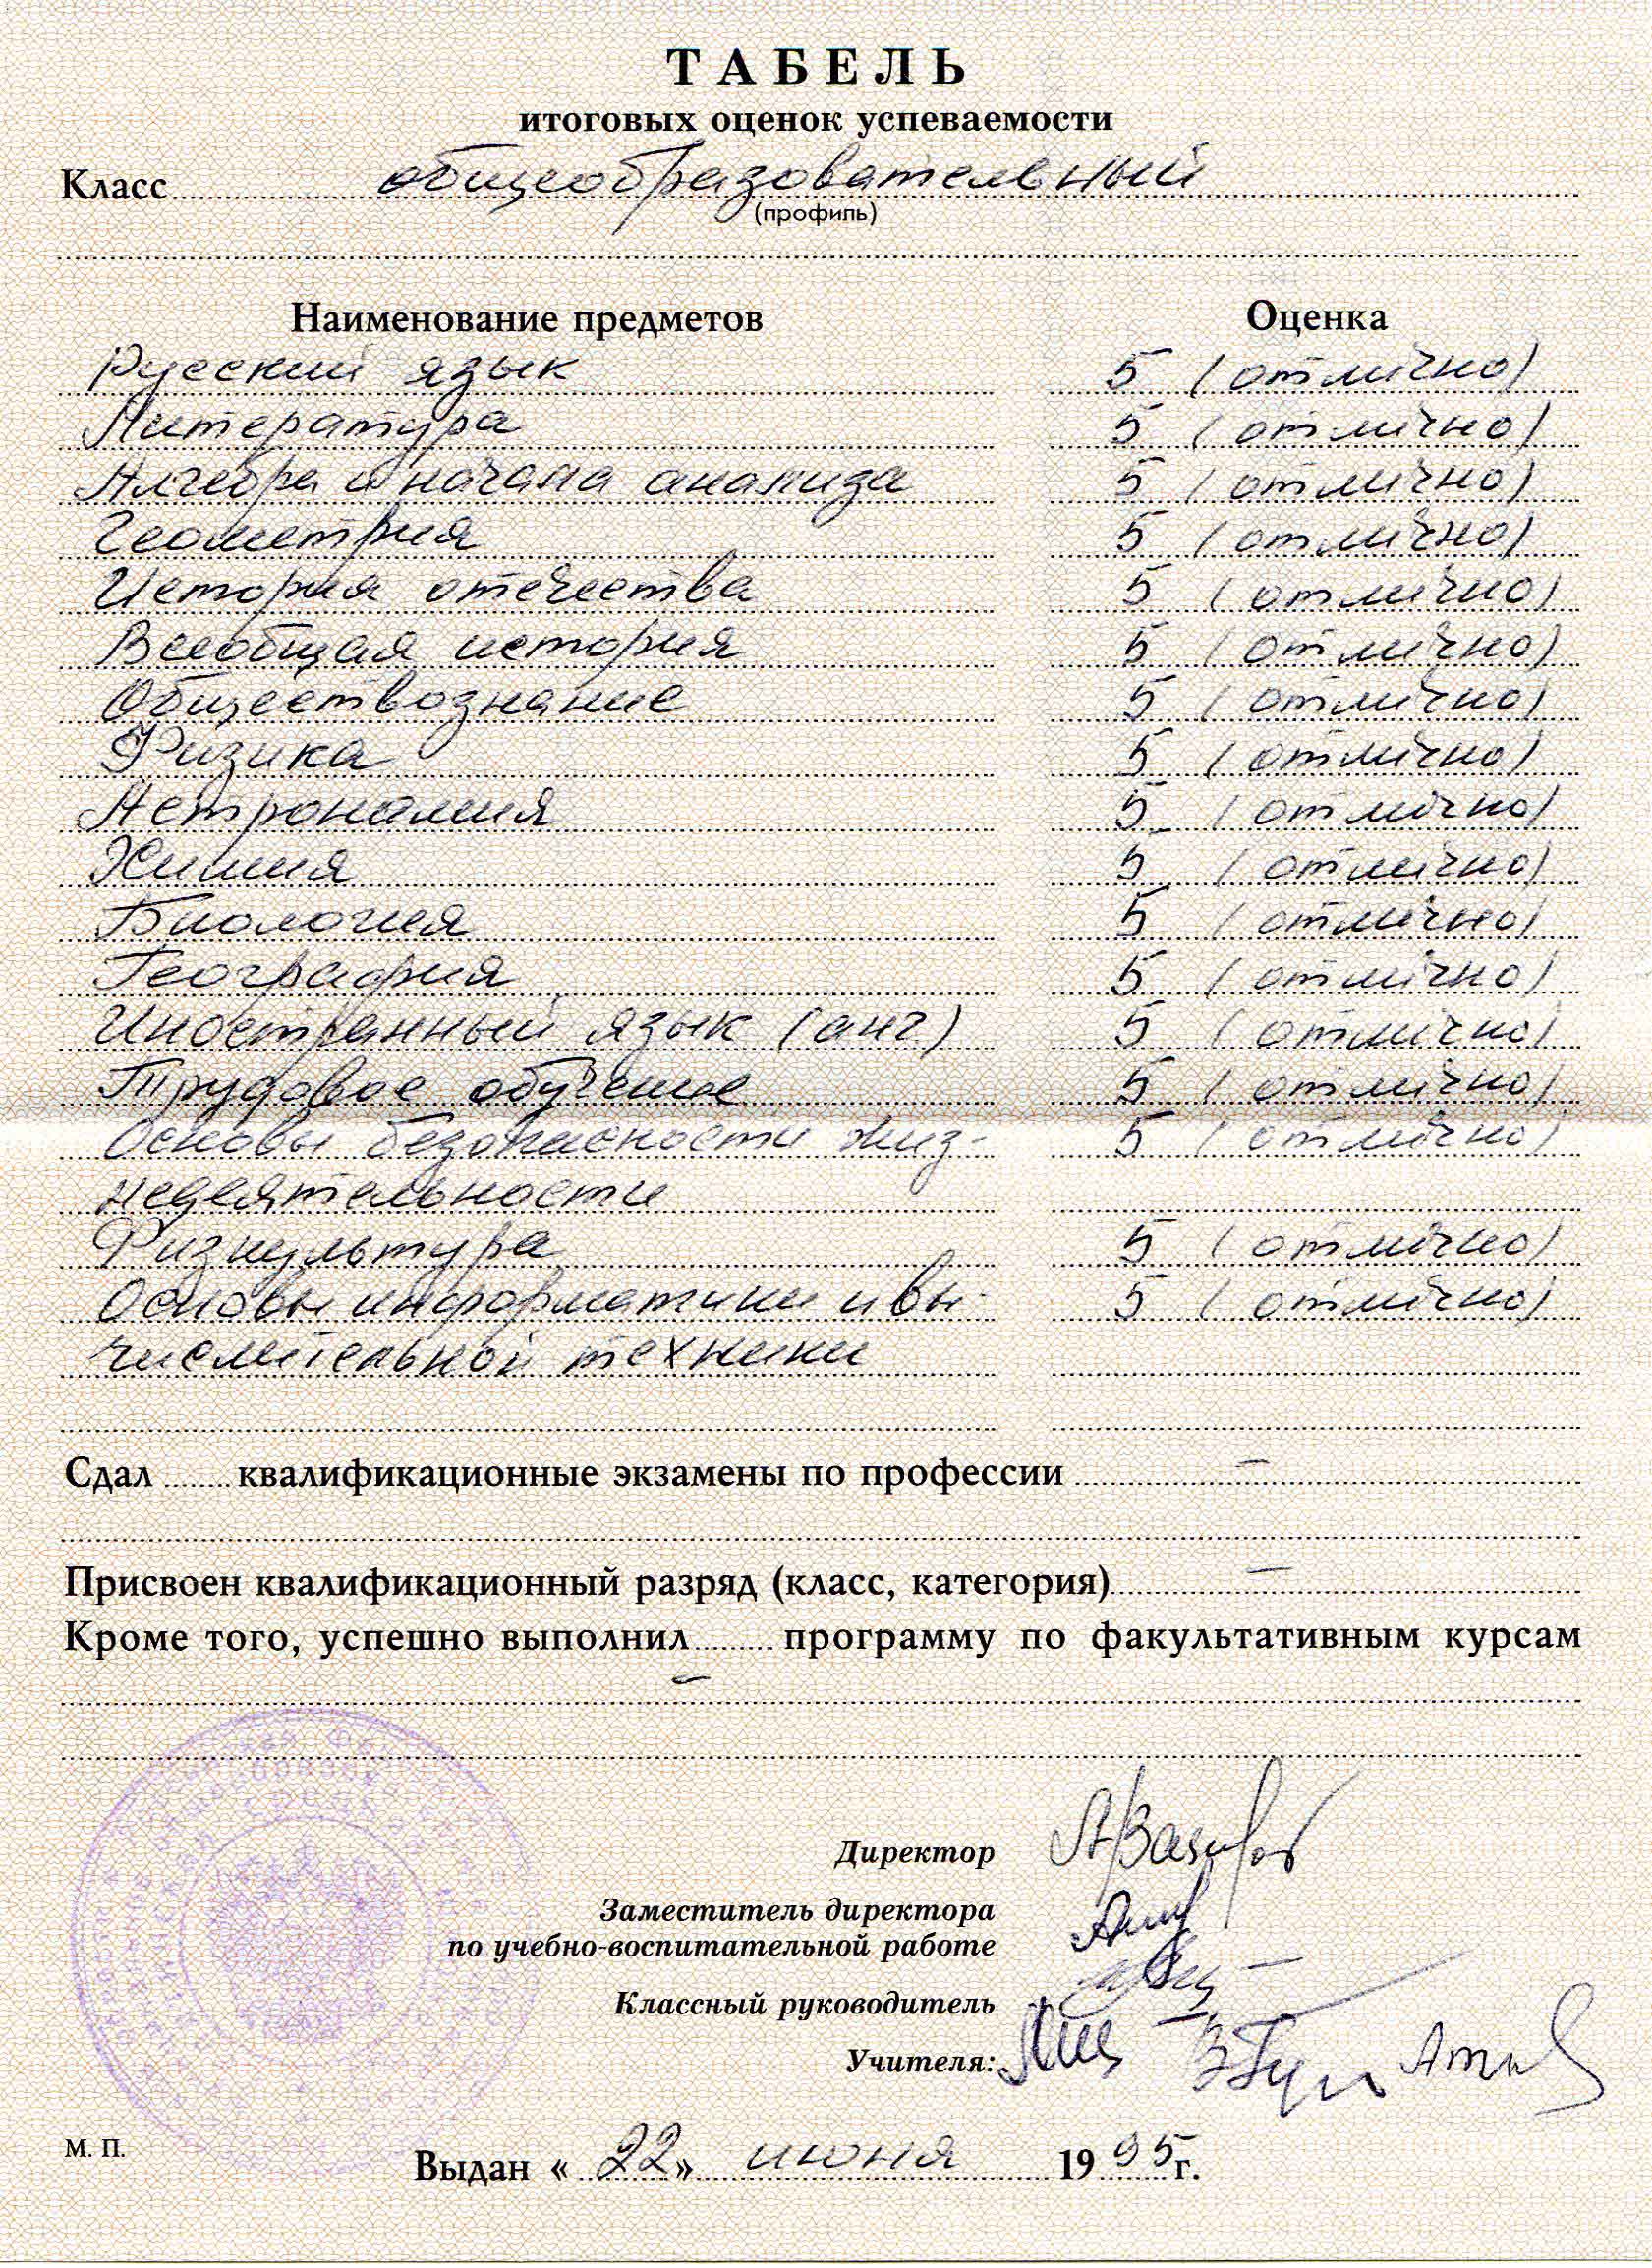 ТАБЕЛЬ
итоговых оценок успеваемости
Класс общеобразовательный
(профиль)
Наименование предметов Оценка
Русский язык 5 (отлично)
Литература 5 (отлично)
Алгебра и начала анализа 5 (отлично)
Геометрия 5 (отлично)
История отечества 5 (отлично)
Всеобщая история 5 (отлично)
Обществознание 5 (отлично)
Физика 5 (отлично)
Астрономия 5 (отлично)
Химия 5 (отлично)
Биология 5 (отлично)
География 5 (отлично)
Иностранный язык (анг) 5 (отлично)
Трудовое обучение 5 (отлично)
Основы безопасности жиз- 5 (отлично)
недеятельности
Физкультура 5 (отлично)
Основы информатики и вы- 5 (отлично)
числительной техники
Сдал ...... квалификационные экзамены по профессии –
Присвоен квалификационный разряд (класс, категория) –
Кроме того, успешно выполнил ...... программу по факультативным курсам
–
Директор
Заместитель директора
по учебно-воспитательной работе
Классный руководитель
Учителя:
М. П.
Выдан « 22 » июня 1995 г.